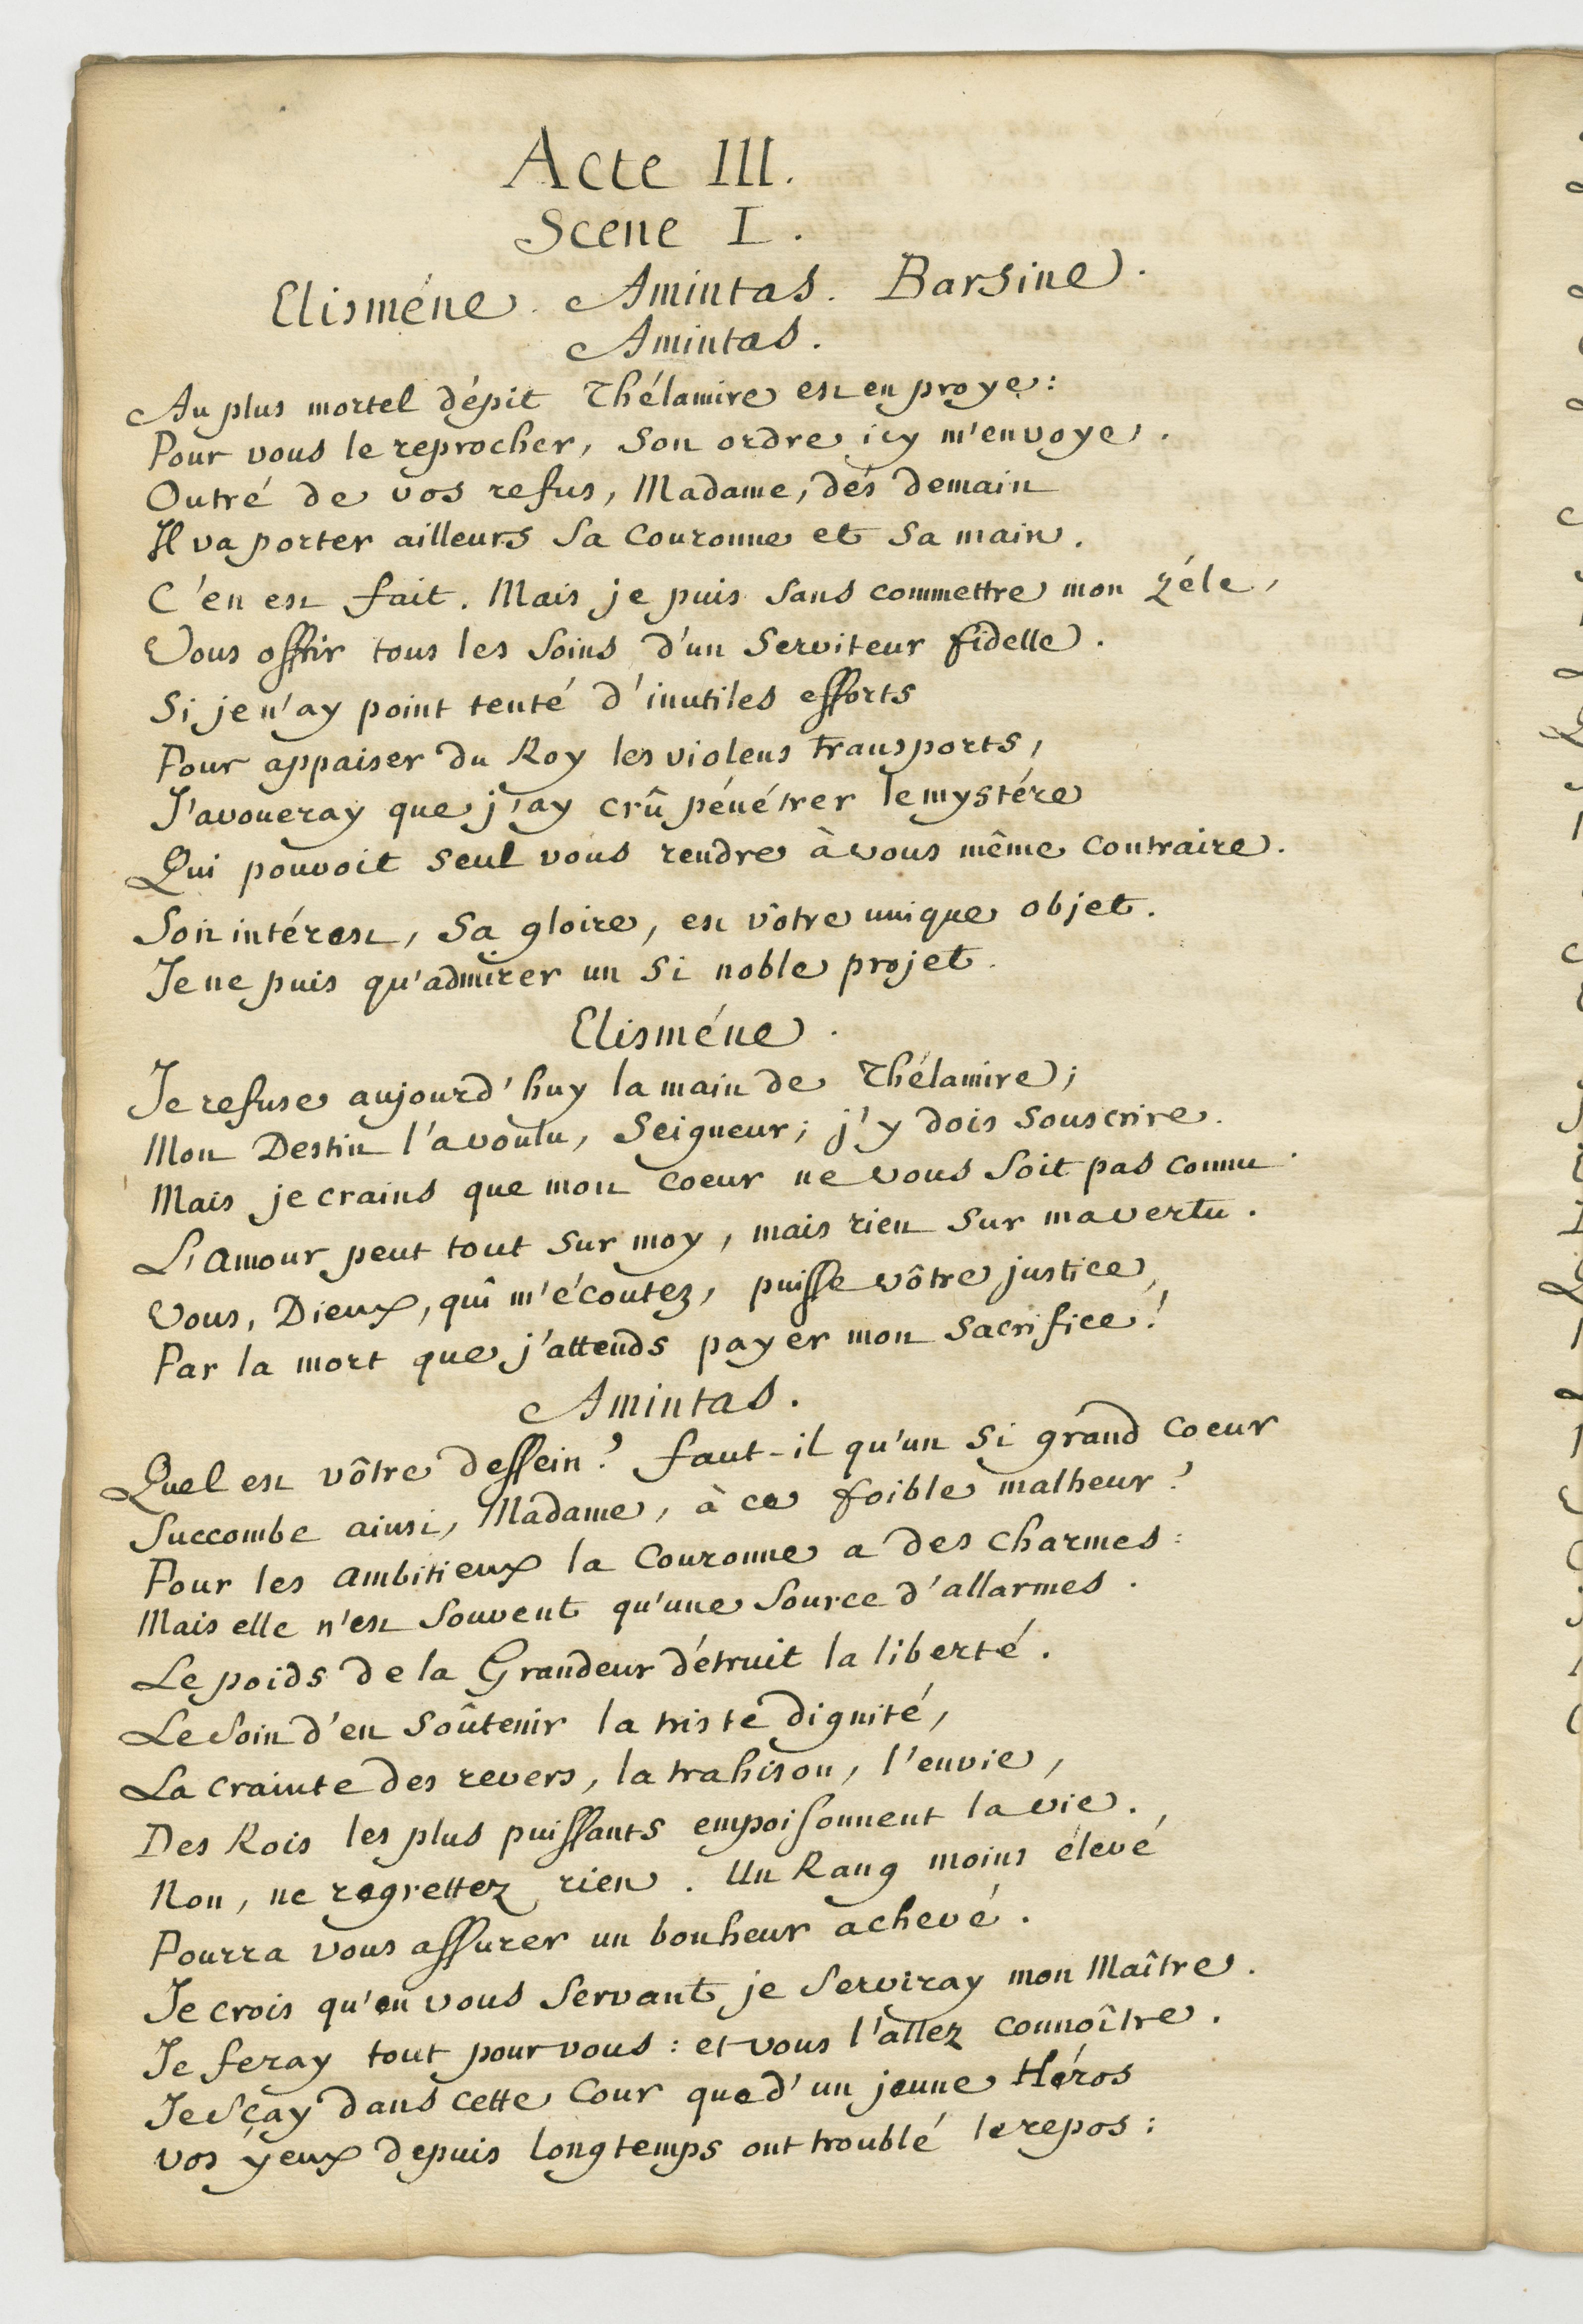 Acte III.
Scene I.
Elisméne. Amintas. Barsine.
Amintas.
Au plus mortel dépit Thélamire est en proye:
Pour vous le reprocher, son ordre icy m'envoye.
Outré de vos refus, Madame, dés demain
Il va porter ailleurs sa Couronne et sa main.
C'en est fait. Mais je puis sans commettre mon zéle,
Vous offrir tous les soins d'un Serviteur fidelle.
Si je n'ay point tenté d'inutiles efforts
Pour appaiser du Roy les violens transports,
J'avoueray que j'ay crû pénétrer le mystére
Qui pouvoit seul vous rendre à vous même contraire.
Son intérest, sa gloire, est vôtre unique objet.
Je ne puis qu'admirer un si noble projet.
Elisméne.
Je refuse aujourd'huy la main de Thélamire;
Mon Destin l'a voulu, Seigneur; j'y dois souscrire.
Mais je crains que mon coeur ne vous soit pas connu.
L'amour peut tout sur moy, mais rien sur ma vertu.
Vous, Dieux, qui m'écoutez, puisse vôtre justice
Par la mort que j'attends payer mon sacrifice!
Amintas.
Quel est vôtre dessein? faut-il qu'un si grand coeur
Succombe ainsi, Madame, à ce foible malheur?
Pour les ambitieux la Couronne a des charmes:
Mais elle n'est souvent qu'une source d'allarmes.
Le poids de la Grandeur détruit la liberté.
Le soin d'en soûtenir la triste dignité,
La crainte des revers, la trahison, l'envie,
Des Rois les plus puissants empoisonnent la vie.
Non, ne regrettez rien. Un Rang moins élevé
Pourra vous assurer un bonheur achevé.
Je crois qu'en vous servant je serviray mon Maître.
Je feray tout pour vous: et vous l'allez connoître.
Je sçay dans cette Cour que d'un jeune Héros
vos yeux depuis longtemps ont troublé le repos: